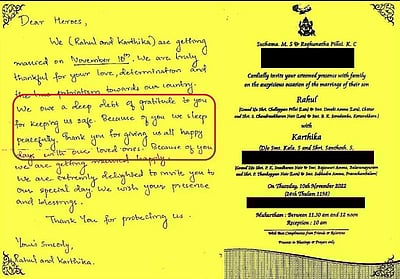 Dear Heroes,
We (Rahul and Karthika) are getting
married on November 10th. We are truly
thankful for your love, determination and
the true patriotism towards our country.
We owe a deep debt of gratitude to you
for keeping us safe. Because of you we sleep
peacefully. Thank you for giving us all happy
days with our loved ones. Because of you
we are getting married happily.
We are extremely delighted to invite you to
our special day. We wish your presence
and blessings.
Thank You for protecting us.
Your's Sincerely,
Rahul and Karthika.
Suchama. M. S & Reghunatha Pillai. K. C
Cordially invite your esteemed presence with family
on the auspicious occasion of the marriage of their son
Rahul
with
Karthika
(D/o Smt. Kala. S and Shri. Santhosh. S.
On Thursday, 10th November 2022
(24th Thulam 1198)
Muhurtham : Between 11.30 am and 12 noon
Reception : 10 am
With Best Compliments from Friends & Relatives
Presence is Blessings or Prayers only